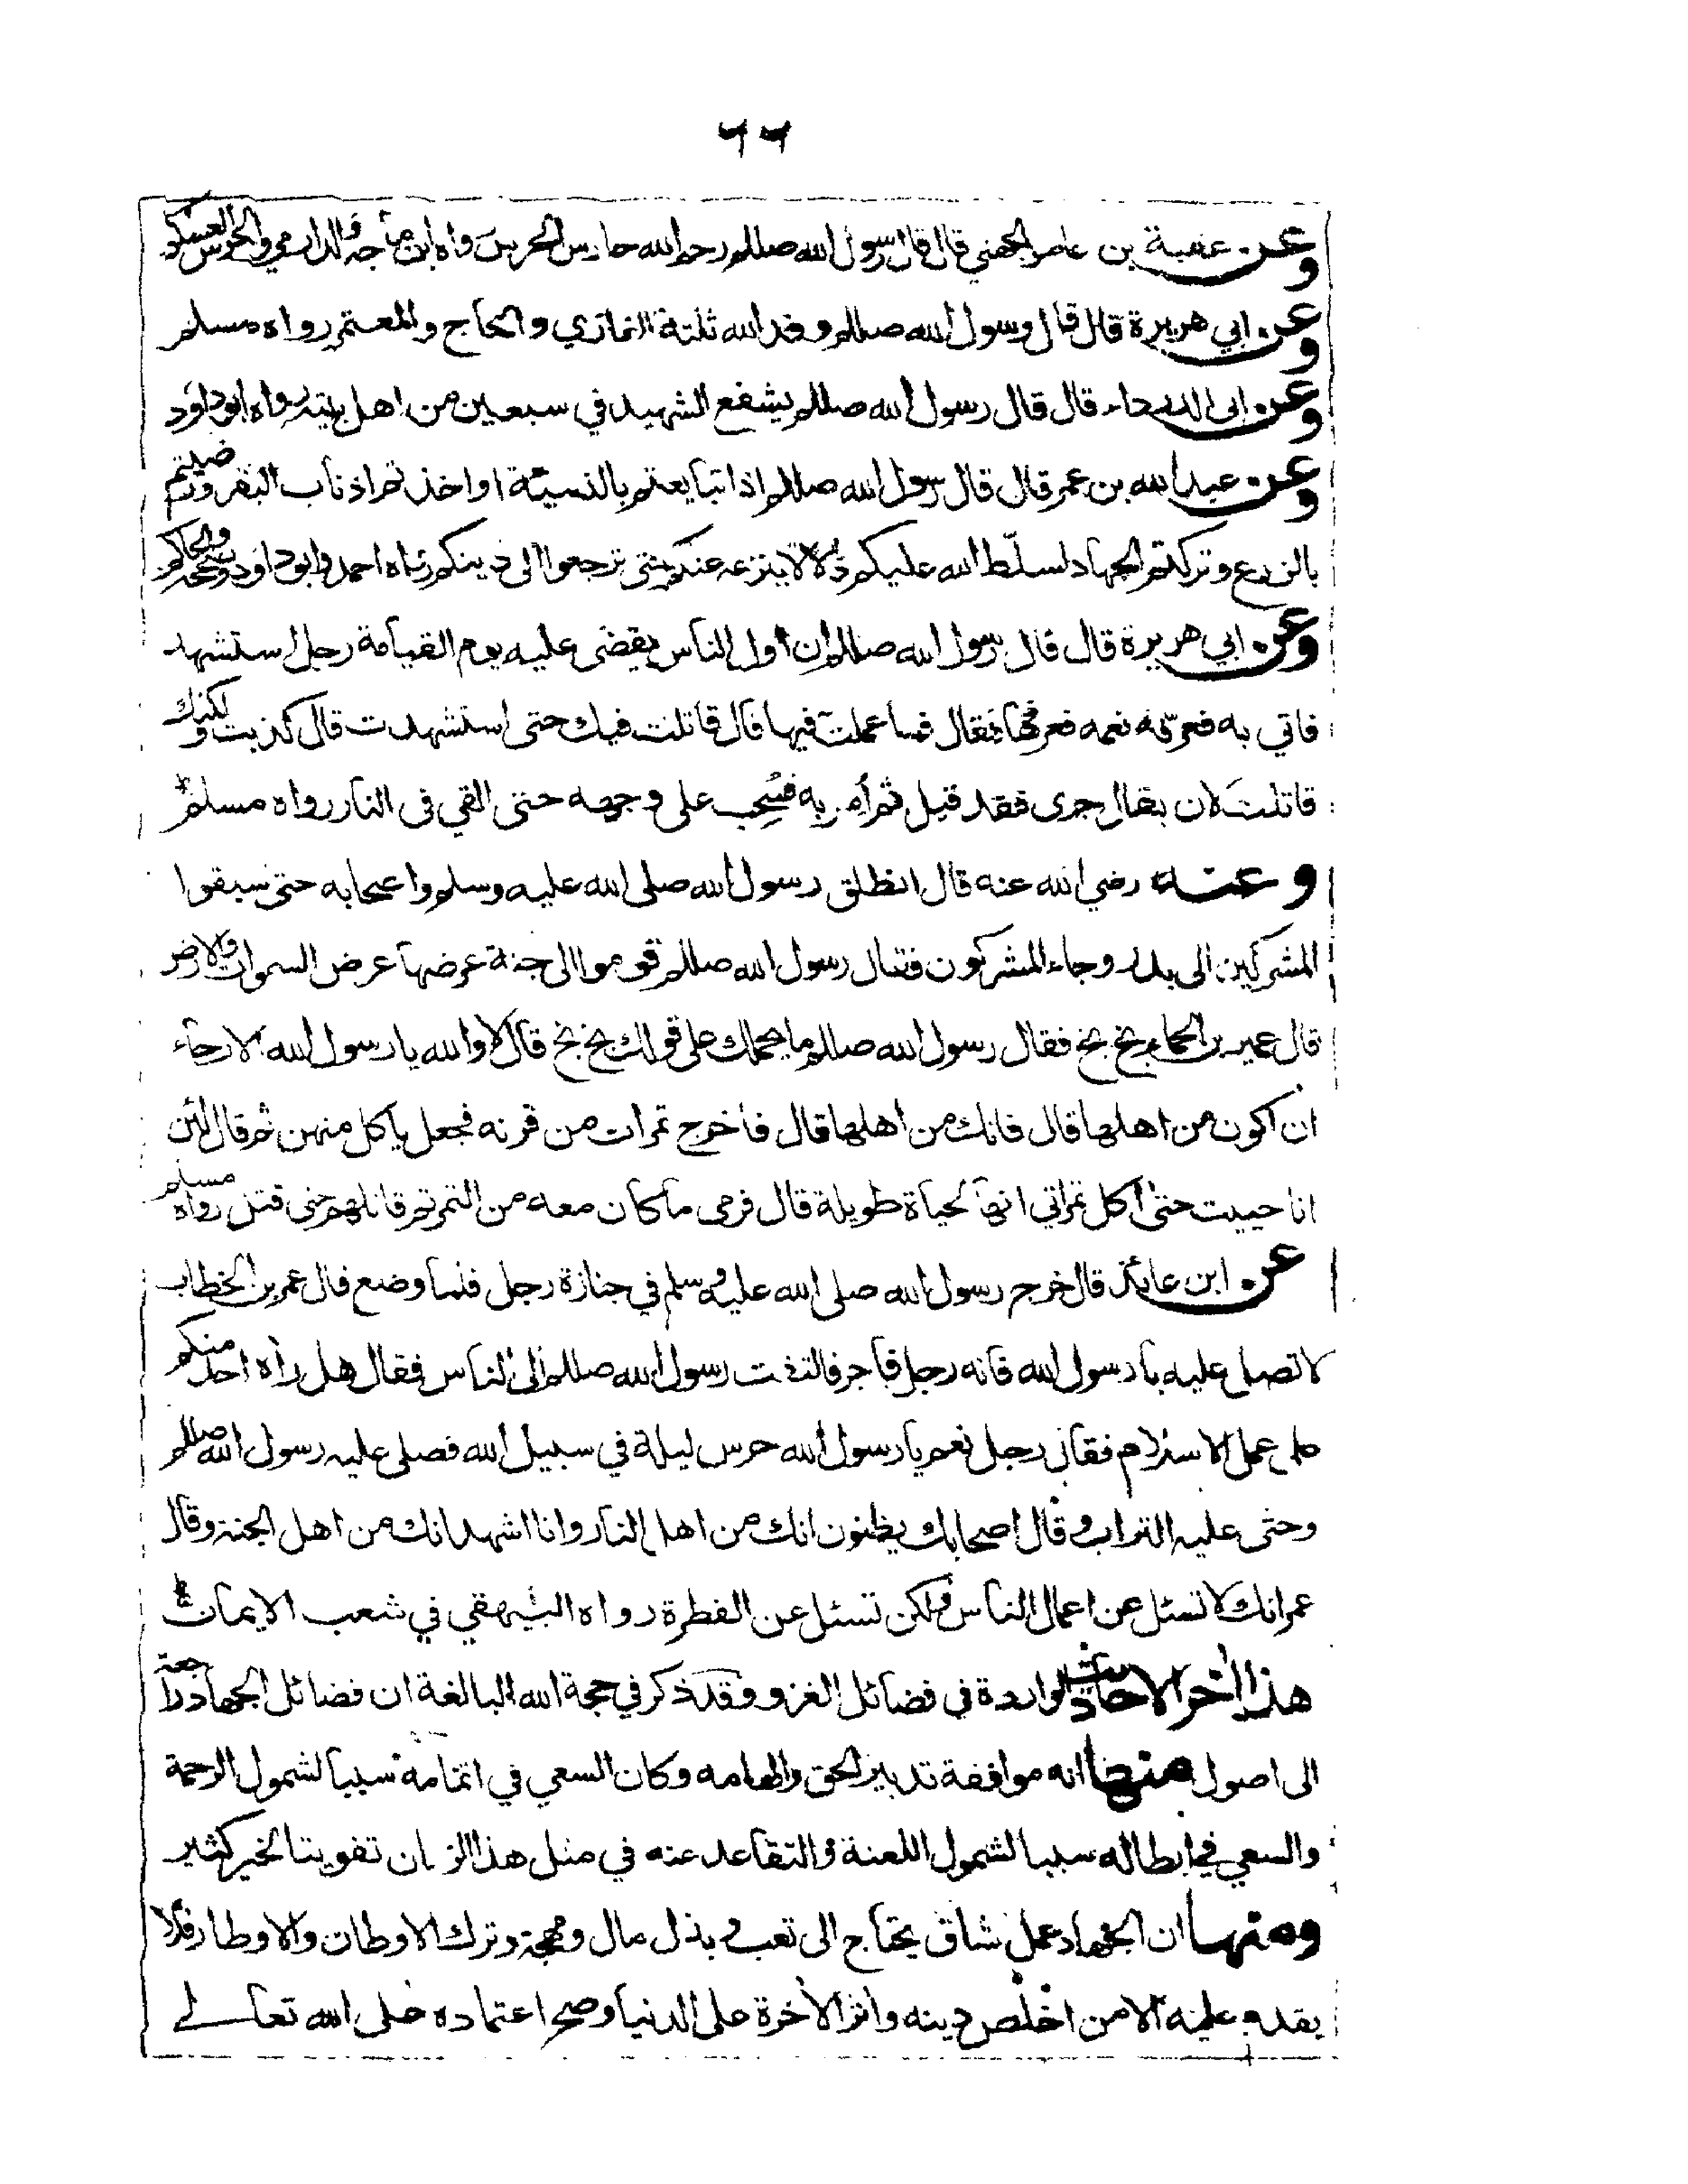 ٦٦
وعن عقبة بن عامر الجهني قال قال رسول الله صللم رحم الله حارس الحرس رواه ابن ماجه والدارمي والحرس العسكر
وعن ابي هريرة قال قال رسول الله صللم وفد الله ثلثة الغازي والحاج والمعتمر رواه مسلم
وعن ابى الدرداء قال قال رسول الله صللم يشفع الشهيد في سبعين من اهل بيته رواه ابو داود
وعن عبد الله بن عمر قال قال رسول الله صللم اذا تبايعتم بالنسيئة او اخذتم اذناب البقر ورضيتم
بالزرع وتركتم الجهاد لسلّط الله عليكم ذلا لا ينزعه عنكم حتى ترجعوا الى دينكم رواه احمد وابو داود وصححه الحاكم
وعن ابي هريرة قال قال رسول الله صللم ان اول الناس يقضى عليه يوم القيامة رجل استشهد
فاتي به فعرّفه نعمه فعرفها فقال فما عملت فيها قال قاتلت فيك حتى استشهدت قال كذبت ولكنك
قاتلت لان يقال جرى فقد قيل ثم أمر به فسُحب على وجهه حتى القي فى النار رواه مسلم
وعنه رضي الله عنه قال انطلق رسول الله صلى الله عليه وسلم واصحابه حتى سبقوا
المشركين الى بدر وجاء المشركون فقال رسول الله صللم قوموا الى جنة عرضها عرض السموات والارض
قال عمير بن الحمام بخ بخ فقال رسول الله صللم ما يحملك على قولك بخ بخ قال لا والله يا رسول الله الا رجاء
ان اكون من اهلها قال فانك من اهلها قال فاخرج تمرات من قرنه فجعل ياكل منهن ثم قال لئن
انا حييت حتى آكل تمراتي انها لحياة طويلة قال فرمى ما كان معه من التمر ثم قاتلهم حتى قتل رواه مسلم
عن ابن عائذ قال خرج رسول الله صلى الله عليه وسلم في جنازة رجل فلما وضع قال عمر بن الخطاب
لا تصل عليه يا رسول الله فانه رجل فاجر فالتفت رسول الله صللم الى الناس فقال هل رأه احد منكم
على عمل الاسلام فقال رجل نعم يا رسول الله حرس ليلة في سبيل الله فصلى عليه رسول الله صللم
وحثى عليه التراب وقال اصحابك يظنون انك من اهل النار وانا اشهد انك من اهل الجنة وقال
عمر انك لا تسئل عن اعمال الناس ولكن تسئل عن الفطرة رواه البيهقي في شعب الايمان
هذا أخر الاحاديث الواردة في فضائل الغزو وقد ذكر في حجة الله البالغة ان فضائل الجهاد راجعة
الى اصول منها انه موافقة تدبير الحق والهامه وكان السعي في اتمامه سببا لشمول الرحمة
والسعي في ابطاله سببا لشمول اللعنة والتقاعد عنه في مثل هذا الزمان تفويتا لخير كثير
ومنها ان الجهاد عمل شاق يحتاج الى تعب وبذل مال ومهجة وترك الاوطان والاوطار فلا
يقدم عليه الا من اخلص دينه وأثر الأخرة على الدنيا وصح اعتماده على الله تعالى